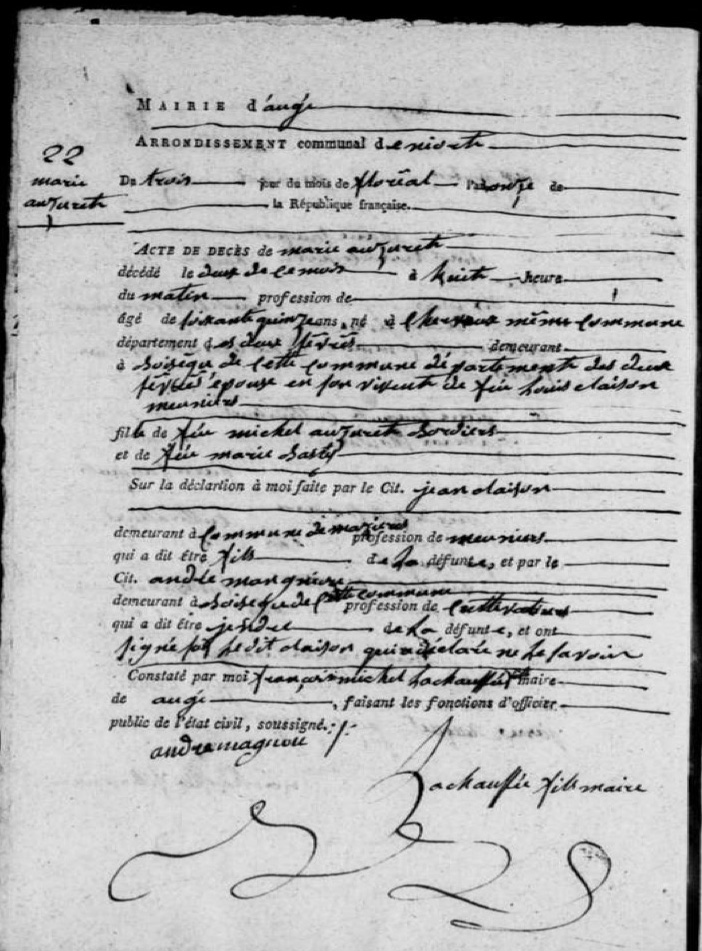 MAIRIE d'augé
ARRONDISSEMENT communal de niort
22
marie
auzureth
Du trois jour du mois de floréal l'an onze de
la République française.
ACTE DE DECÈS de marie auzureth
décédé le deux de ce mois à huit heure
du matin profession de
âgé de soixante quinze ans, né à même commune
département des deux sèvres demeurant
à de cette commune département des deux
sèvres epouse en son vivent de feu Louis claison
meuniers
fille de feu michel auzureth bordiers
et de feu marie
Sur la déclartion à moi faite par le Cit. jean claison
demeurant à commune de mazieres profession de meuniers
qui a dit être fils de la défunte, et par le
Cit. andre
demeurant à de cette commune profession de cultivateurs
qui a dit être jendre de la défunte, et ont
signé le dit claison qui a déclaré ne le savoir
Constaté par moi françois michel Lachauffée fils maire
de augé, faisant les fonctions d'officier
public de l'état civil, soussigné.
andre magnou
Lachauffée fils maire